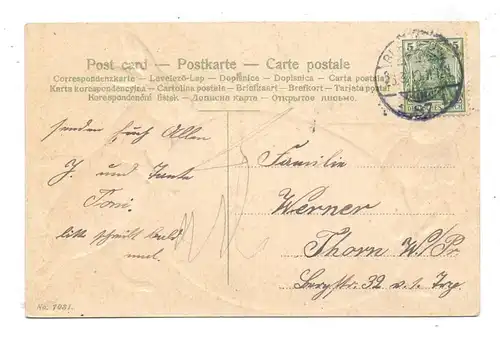 Post card — Postkarte — Carte postale
Correspondenzkarte - Levelező-Lap - Dopisnice - Dopisnica - Carta postale
Karta korespondencyjna - Cartolina postale - Briefkaart - Brefkort - Tarjeta postal
Korespondenční lístek. - Дописна карта. - Открытое письмо.
5 5
senden Euch Allen
J. und Tante
Toni.
bitte schreibt bald
mal.
Familie
Werner
Thorn W/Pr.
Bergstr. 32 v. 1. Trp.
No. 1081.